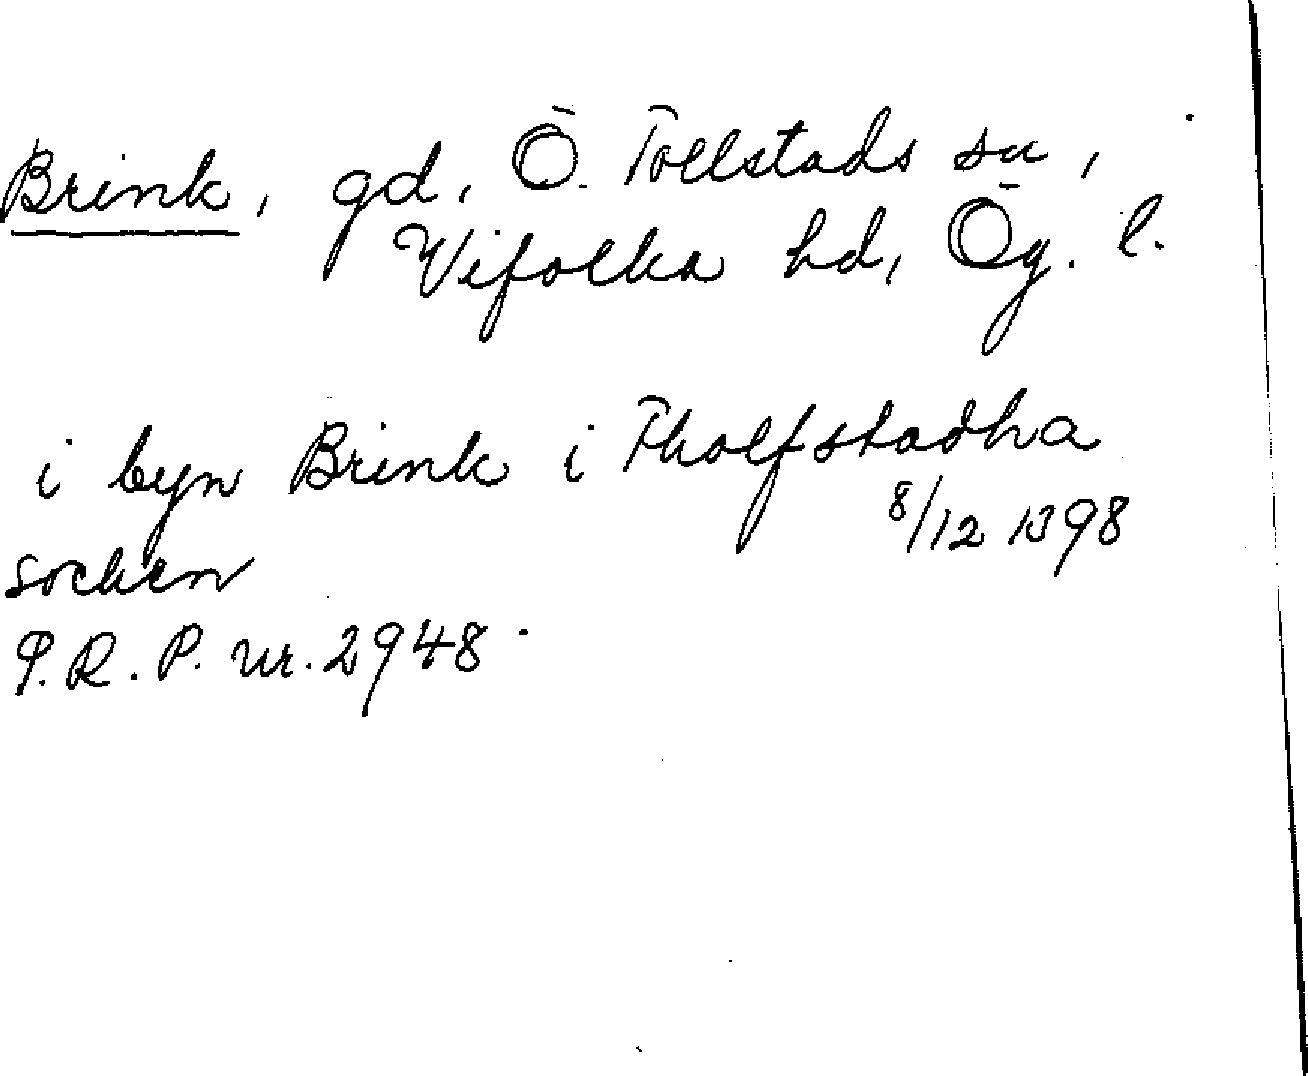 Brink, gd, Ö. Tollstads sn,
Vifolka hd, Ög. l.
i byn Brink i Tholfstadha
socken 8/12 1398
P.R.P. nr. 2948.